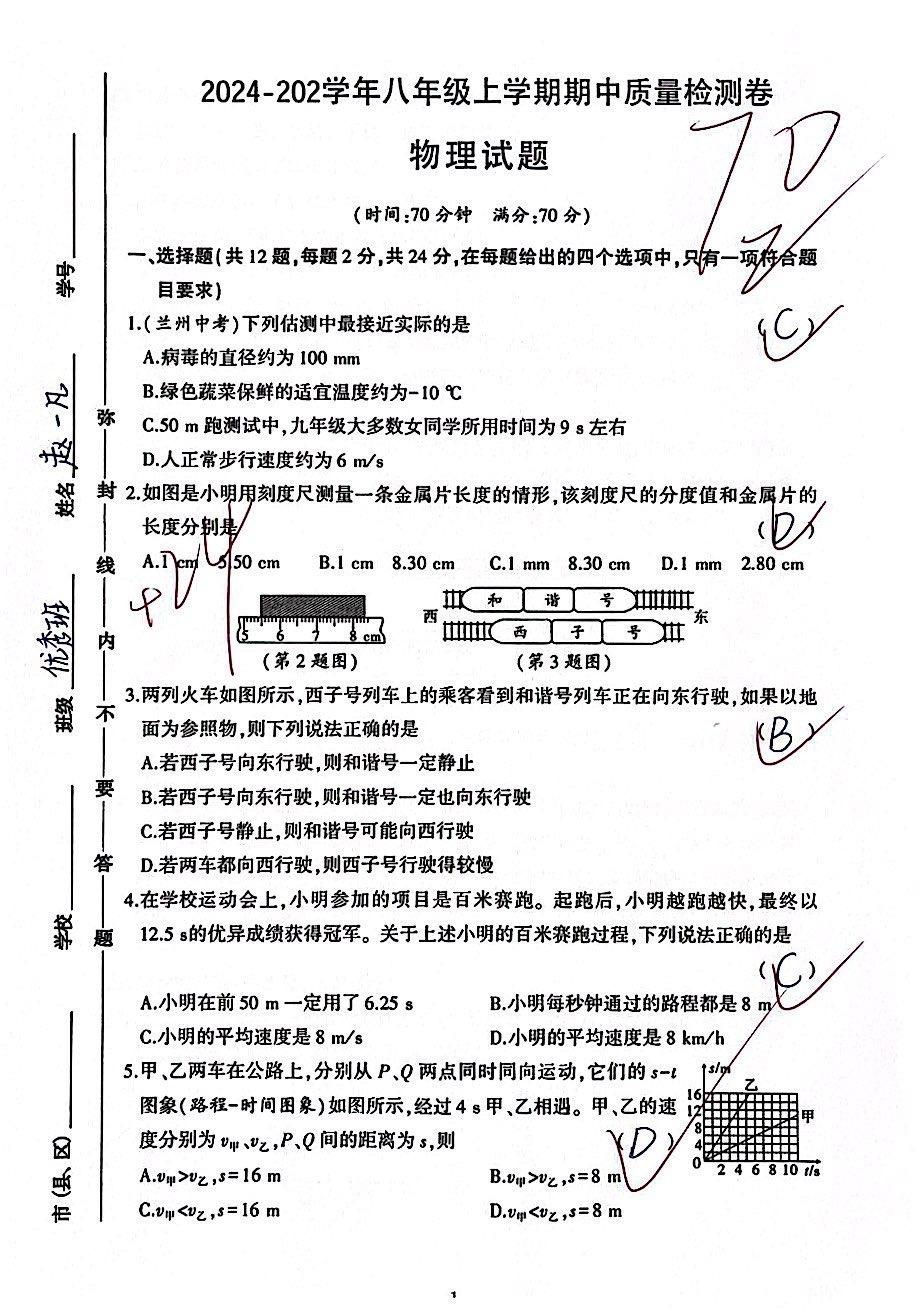 2024-202学年八年级上学期期中质量检测卷
物理试题
70
(时间:70分钟 满分:70分)
一、选择题(共12题,每题2分,共24分,在每题给出的四个选项中,只有一项符合题
目要求)
1.(兰州中考)下列估测中最接近实际的是 (C)
A.病毒的直径约为100 mm
B.绿色蔬菜保鲜的适宜温度约为-10 ℃
C.50 m跑测试中,九年级大多数女同学所用时间为9 s左右
D.人正常步行速度约为6 m/s
2.如图是小明用刻度尺测量一条金属片长度的情形,该刻度尺的分度值和金属片的
长度分别是 (D)
A.1 cm 5.50 cm B.1 cm 8.30 cm C.1 mm 8.30 cm D.1 mm 2.80 cm
+24
5 6 7 8 cm
(第2题图)
西 和 谐 号 东
西 子 号
(第3题图)
3.两列火车如图所示,西子号列车上的乘客看到和谐号列车正在向东行驶,如果以地
面为参照物,则下列说法正确的是 (B)
A.若西子号向东行驶,则和谐号一定静止
B.若西子号向东行驶,则和谐号一定也向东行驶
C.若西子号静止,则和谐号可能向西行驶
D.若两车都向西行驶,则西子号行驶得较慢
4.在学校运动会上,小明参加的项目是百米赛跑。起跑后,小明越跑越快,最终以
12.5 s的优异成绩获得冠军。关于上述小明的百米赛跑过程,下列说法正确的是
(C)
A.小明在前50 m一定用了6.25 s B.小明每秒钟通过的路程都是8 m
C.小明的平均速度是8 m/s D.小明的平均速度是8 km/h
5.甲、乙两车在公路上,分别从P、Q两点同时同向运动,它们的s-t
图象(路程-时间图象)如图所示,经过4 s甲、乙相遇。甲、乙的速
度分别为v甲、v乙,P、Q间的距离为s,则 (D)
A.v甲>v乙,s=16 m B.v甲>v乙,s=8 m
C.v甲<v乙,s=16 m D.v甲<v乙,s=8 m
s/m
乙
甲
16
12
8
4
0
2 4 6 8 10 t/s
学号
姓名 赵一凡
班级 优秀班
学校
市(县、区)
弥 封 线 内 不 要 答 题
1